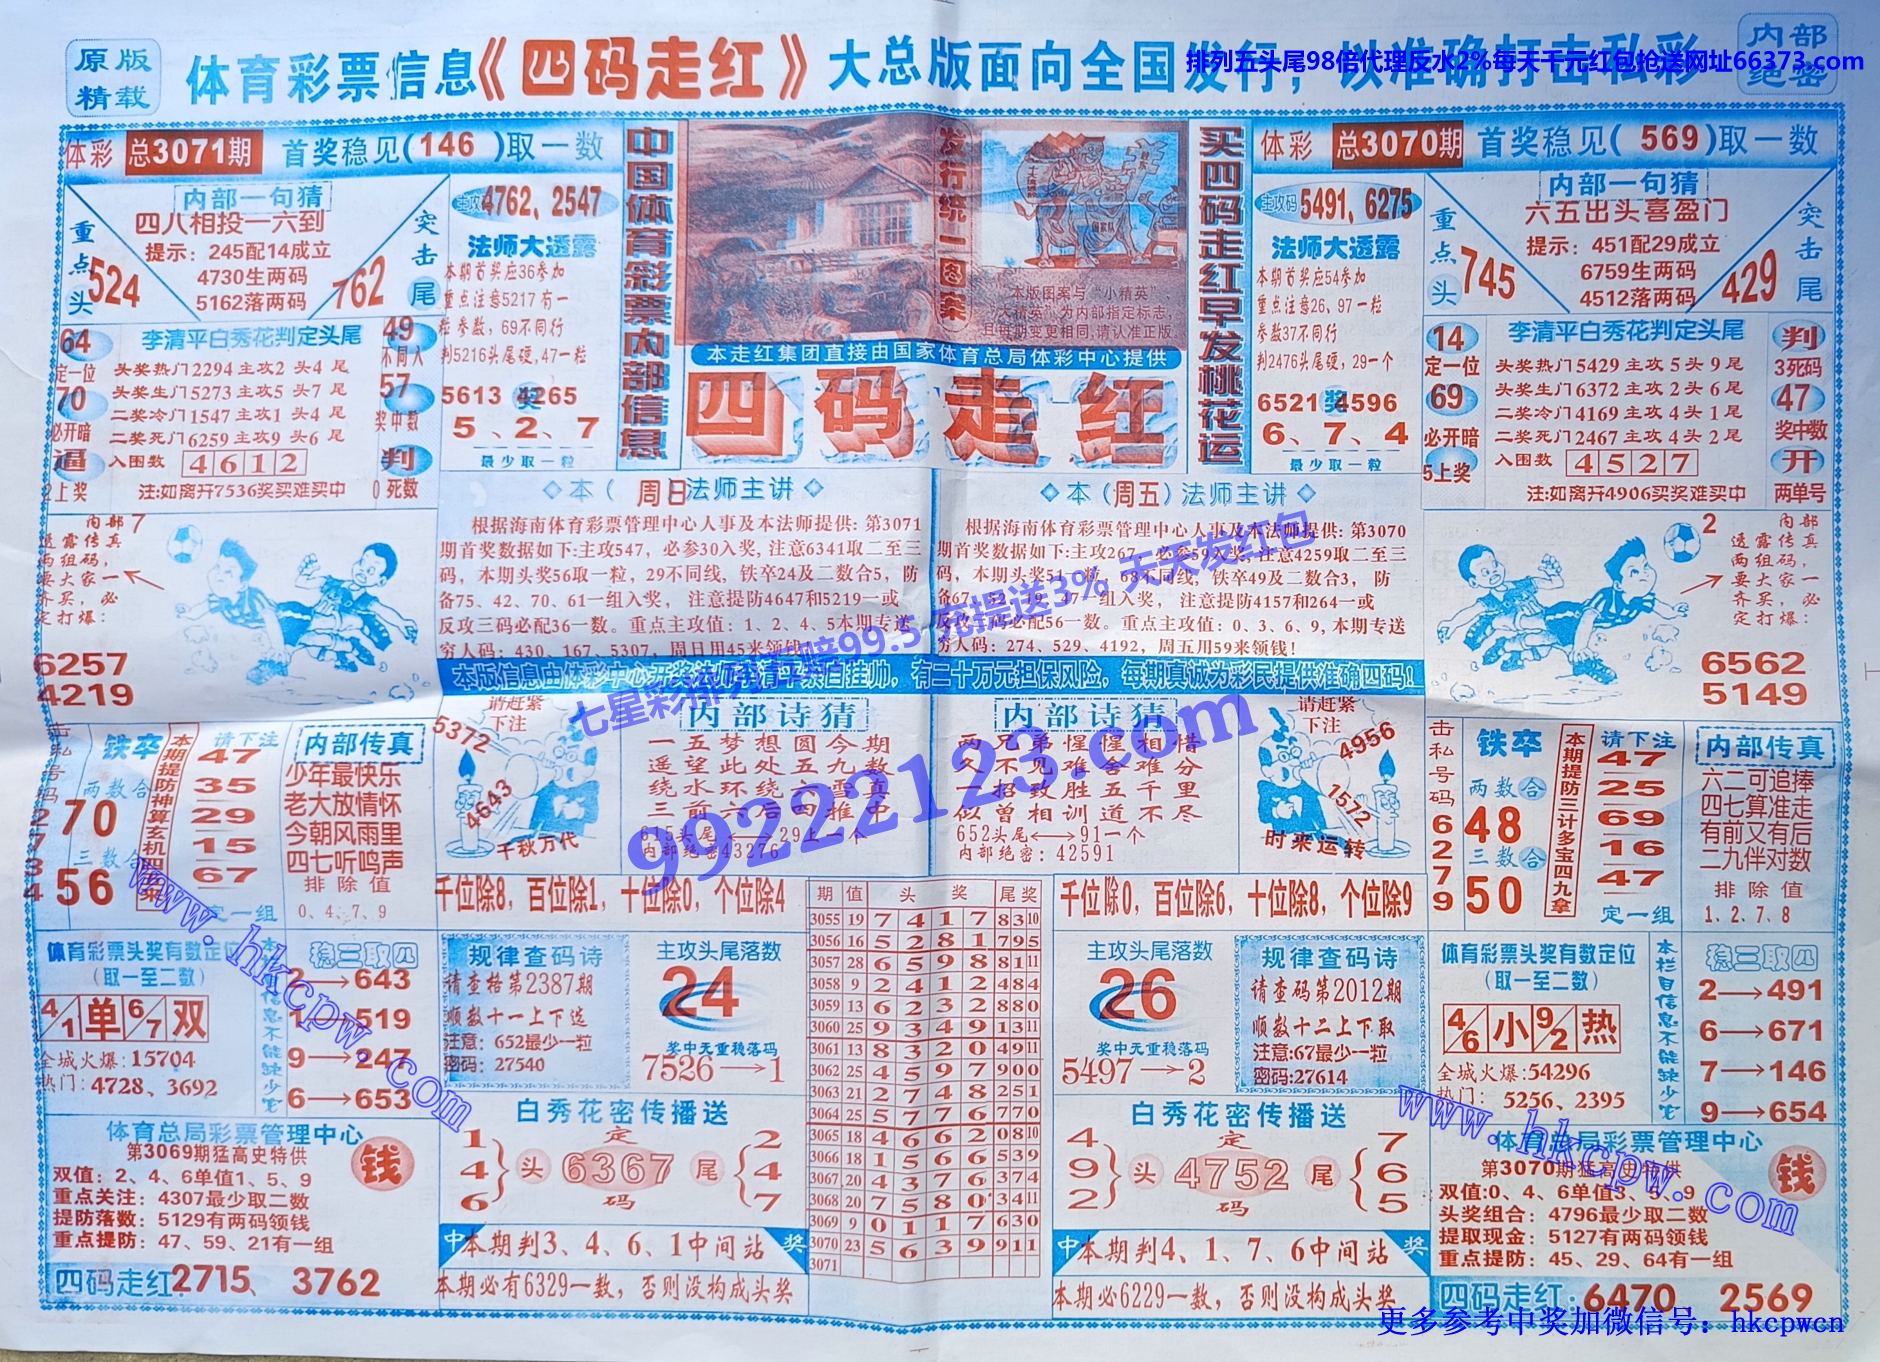 原版
精载
体育彩票信息《四码走红》大总版面向全国发行，以准确打击私彩
内部
绝密
排列五头尾98倍代理反水2%每天千元红包抢送网址66373.com
体彩 总3071期 首奖稳见(146)取一数
内部一句猜
四八相投一六到
提示：245配14成立
4730生两码
5162落两码
重点头
524
突击尾
762
主攻码 4762、2547
法师大透露
本期首奖应36参加
重点注意5217有一
粒参数，69不同行
判5216头尾硬，47一粒
5613 奖 4265
5、2、7
最少取一粒
64
定一位
70
必开暗
逼
2上奖
李清平白秀花判定头尾
头奖热门2294主攻2头4尾
头奖生门5273主攻5头7尾
二奖冷门1547主攻1头4尾
二奖死门6259主攻9头6尾
入围数 4 6 1 2
注:如离开7536奖买难买中
49
不同入
57
奖中数
判
0死数
中国体育彩票内部信息
发行统一图案
本版图案与“小精英”、
“大精英”为内部指定标志，
且每期变更相同,请认准正版
本走红集团直接由国家体育总局体彩中心提供
四码走红
买四码走红早发桃花运
体彩 总3070期 首奖稳见(569)取一数
主攻码 5491、6275
法师大透露
本期首奖应54参加
重点注意26、97一粒
参数37不同行
判2476头尾硬，29一个
6521 奖 4596
6、7、4
最少取一粒
内部一句猜
六五出头喜盈门
提示：451配29成立
6759生两码
4512落两码
重点头
745
突击尾
429
14
定一位
69
必开暗
5上奖
李清平白秀花判定头尾
头奖热门5429主攻5头9尾
头奖生门6372主攻2头6尾
二奖冷门4169主攻4头1尾
二奖死门2467主攻4头2尾
入围数 4 5 2 7
注:如离开4906买奖难买中
判
3死码
47
奖中数
开
两单号
内部 7
透露传真
两组码，
要大家一
齐买，必
定打爆：
6257
4219
◇本（周日）法师主讲◇
根据海南体育彩票管理中心人事及本法师提供: 第3071
期首奖数据如下:主攻547，必参30入奖, 注意6341取二至三
码，本期头奖56取一粒，29不同线, 铁卒24及二数合5，防
备75、42、70、61一组入奖， 注意提防4647和5219一或
反攻三码必配36一数。重点主攻值：1、2、4、5本期专送
穷人码：430、167、5307，周日用45来领钱！
◇本（周五）法师主讲◇
根据海南体育彩票管理中心人事及本法师提供: 第3070
期首奖数据如下:主攻267，必参59入奖, 注意4259取二至三
码，本期头奖51一粒，68不同线，铁卒49及二数合3，防
备67、52、19、47一组入奖， 注意提防4157和264一或
反攻三码必配56一数。重点主攻值：0、3、6、9, 本期专送
穷人码：274、529、4192，周五用59来领钱！
2 内部
透露传真
两组码，
要大家一
齐买，必
定打爆：
6562
5149
本版信息由体彩中心开奖法师李清平亲自挂帅，有二十万元担保风险，每期真诚为彩民提供准确四码！
七星彩排列五赔99.5 充提送3% 天天发红包
99222123.com
击私号码
2
7
3
4
铁卒
两数合
70
三数合
56
本期提防神算玄机四五来
请下注
47
35
29
15
67
定一组
内部传真
少年最快乐
老大放情怀
今朝风雨里
四七听鸣声
排除值
0、4、7、9
5372
请赶紧
下注
4643
千秋万代
内部诗猜
一五梦想圆今期
遥望此处五九数
绕水环绕六雪真
三前六后句推中
615头尾⟷29上一个
内部绝密43276
内部诗猜
两兄弟惺惺相惜
久不见难舍难分
一招致胜五千里
似曾相训道不尽
652头尾⟷91一个
内部绝密：42591
请赶紧
下注
4956
1572
时来运转
击私号码
6
2
7
9
铁卒
两数合
48
三数合
50
本期提防三计多宝四九拿
请下注
47
25
69
16
47
定一组
内部传真
六二可追捧
四七算准走
有前又有后
二九伴对数
排除值
1、2、7、8
千位除8，百位除1，十位除0，个位除4
千位除0，百位除6，十位除8，个位除9
期 值 头 奖 尾奖
3055 19 7 4 1 7 8310
3056 16 5 2 8 1 795
3057 28 6 5 9 8 8111
3058 9 2 4 1 2 484
3059 13 6 2 3 2 880
3060 25 9 3 4 9 1311
3061 13 8 3 2 0 4911
3062 25 4 5 9 7 900
3063 21 2 7 4 8 251
3064 25 5 7 7 6 770
3065 18 4 6 6 2 0810
3066 18 1 5 6 6 539
3067 20 4 3 7 6 374
3068 20 7 5 8 0 3411
3069 9 0 1 1 7 630
3070 23 5 6 3 9 911
3071
体育彩票头奖有数定位
（取一至二数）
4/1 单 6/7 双
全城火爆:15704
热门：4728、3692
本栏目信息不能缺少它
稳三取四
2→643
1→519
9→247
6→653
规律查码诗
请查格第2387期
顺数十一上下选
注意：652最少一粒
密码：27540
主攻头尾落数
24
奖中无重稳落码
7526→1
主攻头尾落数
26
奖中无重稳落码
5497→2
规律查码诗
请查码第2012期
顺数十二上下取
注意:67最少一粒
密码:27614
体育彩票头奖有数定位
（取一至二数）
4/6 小 9/2 热
全城火爆:54296
热门：5256、2395
本栏目信息不能缺少它
稳三取四
2→491
6→671
7→146
9→654
体育总局彩票管理中心
第3069期猛高史特供
双值：2、4、6单值1、5、9
重点关注：4307最少取二数
提防落数：5129有两码领钱
重点提防：47、59、21有一组
钱
四码走红:2715、3762
白秀花密传播送
1
4
6
定
头 6367 尾
码
2
4
7
中 本期判3、4、6、1中间站 奖
本期必有6329一数，否则没构成头奖
白秀花密传播送
4
9
2
定
头 4752 尾
码
7
6
5
中 本期判4、1、7、6中间站 奖
本期必6229一数，否则没构成头奖
体育总局彩票管理中心
第3070期猛高史特供
双值:0、4、6单值3、5、9
头奖组合：4796最少取二数
提取现金：5127有两码领钱
重点提防：45、29、64有一组
钱
四码走红：6470、2569
www.hkcpw.com
www.hkcpw.com
更多参考中奖加微信号：hkcpwcn